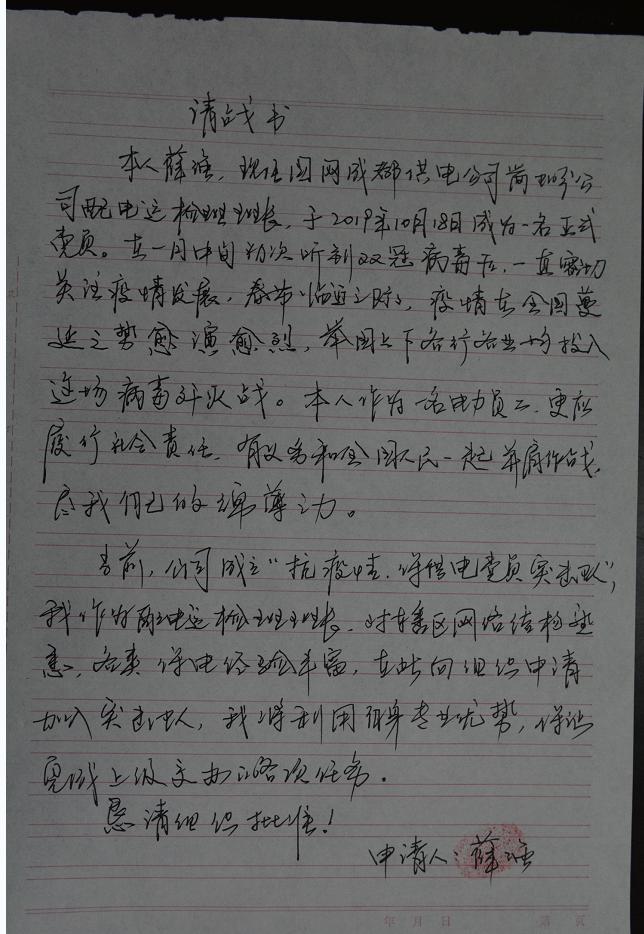 请战书
本人薛，现任国网成都供电公司分公
司配电运检班班长，于2019年10月18日成为一名正式
党员。在一月中旬初次听到双冠病毒后，一直密切
关注疫情发展，春节临近之际，疫情在全国蔓
延之势愈演愈烈，举国上下各行各业均投入
这场病毒歼灭战。本人作为一名电力员工，更应
履行社会责任，有义务和全国人民一起并肩作战，
尽我们己的绵薄之力。
当前，公司成立“抗疫情、保供电党员突击队”，
我作为配电运检班班长，对辖区网络结构熟
悉，各类保电经验丰富，在此向组织申请
加入突击队，我将利用自身专业优势，保证
完成上级交办的各项任务。
恳请组织批准！
申请人：薛
年 月 日
第 页